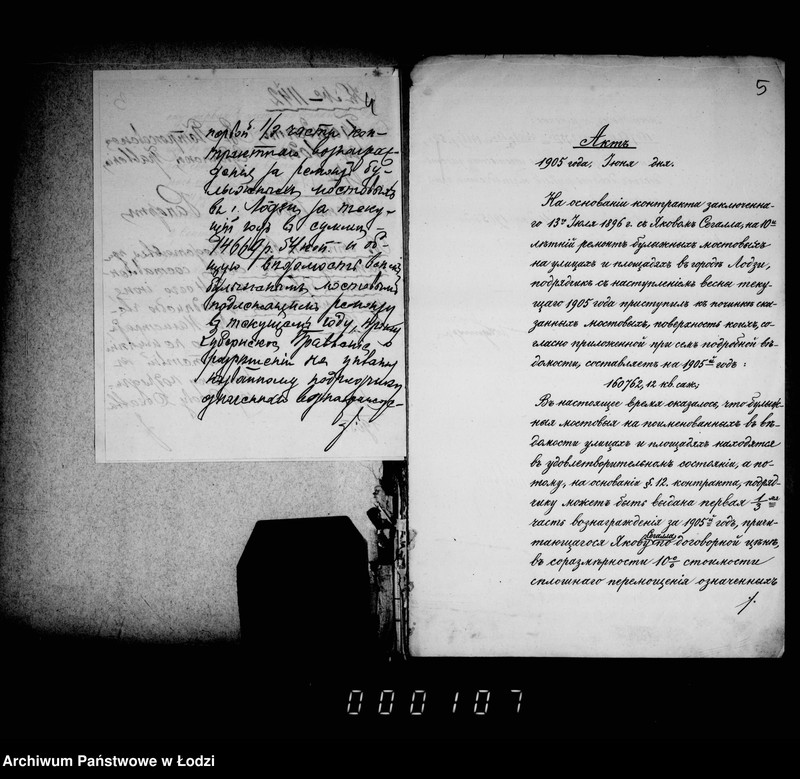 4
первой 1/3 части кон-
трактнаго вознагра-
жденія за ремонт бу-
лыжныхъ мостовыхъ
въ г. Лодзи за теку-
щій годъ въ суммѣ
р. 54 коп. и об-
щую вѣдомость
булыжнымъ мостовымъ
подлежащимъ ремонту
въ текущемъ году, прошу
Губернское Правленіе о
разрѣшеніи на уплату
подрядчику
означеннаго вознагражде-
5
Актъ
1905 года, Іюня дня.
На основаніи контракта заключенна-
го 13го Іюля 1896 г. съ Яковомъ Сегалла, на 10ти
лѣтній ремонтъ булыжныхъ мостовыхъ
на улицахъ и площадяхъ въ городѣ Лодзи,
подрядчикъ съ наступленіемъ весны теку-
щаго 1905 года приступилъ къ починкѣ ска-
занныхъ мостовыхъ, поверхность коихъ, со-
гласно приложенной при семъ подробной вѣ-
домости, составляетъ на 1905й годъ:
160762,12 кв. саж;
Въ настоящее время оказалось, что булыж-
ныя мостовыя на поименованныхъ въ вѣ-
домости улицахъ и площадяхъ находятся
въ удовлетворительномъ состояніи, а по-
тому, на основаніи §. 12. контракта, подряд-
чику можетъ быть выдана первая 1/3
часть вознагражденія за 1905й годъ, причи-
тающагося Якову Сегалла по договорной цѣнѣ,
въ соразмѣрности 10% стоимости
сплошнаго перемощенія означенныхъ
000107
Archiwum Państwowe w Łodzi